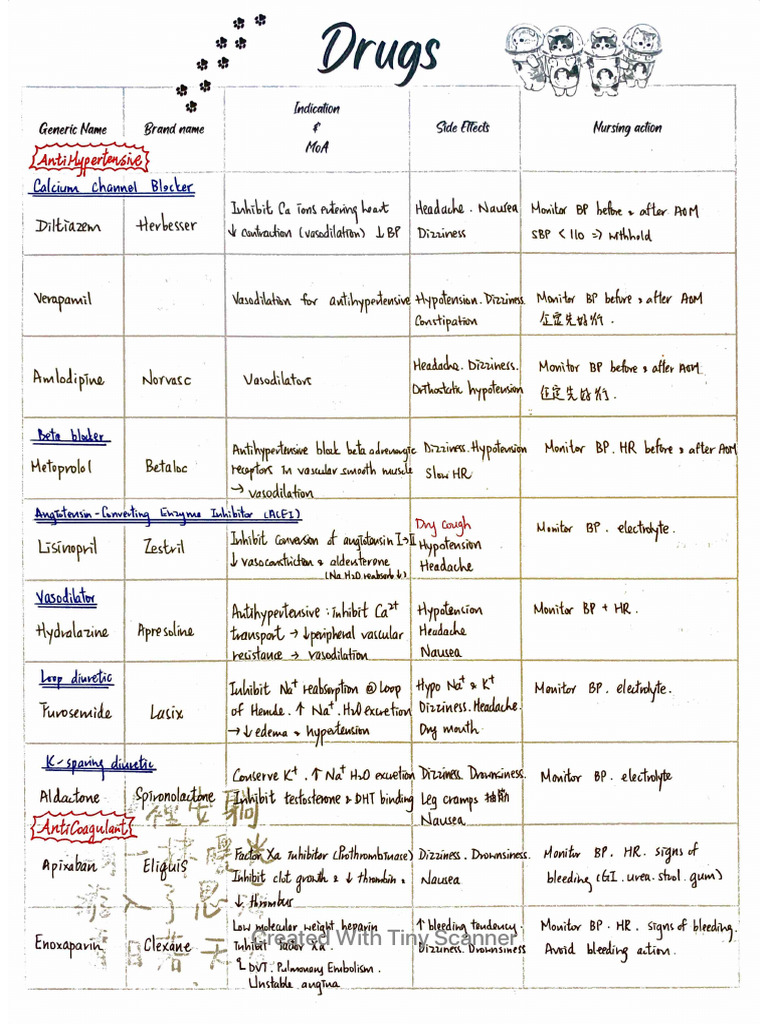 Drugs
Generic Name
Brand name
Indication
&
MoA
Side Effects
Nursing action
AntiHypertensive
Calcium Channel Blocker
Diltiazem
Herbesser
Inhibit Ca ions entering heart
↓ contraction (vasodilation) ↓ BP
Headache. Nausea
Dizziness
Monitor BP before & after AOM
SBP < 110 => withhold
Verapamil
Vasodilation for antihypertensive
Hypotension. Dizziness.
Constipation
Monitor BP before & after AOM
Amlodipine
Norvasc
Vasodilators
Headache. Dizziness.
Orthostatic hypotension
Monitor BP before & after AOM
Beta blocker
Metoprolol
Betaloc
Antihypertensive block beta adrenergic
receptors in vascular smooth muscle
→ vasodilation
Dizziness. Hypotension
Slow HR
Monitor BP. HR before & after AOM
Angiotensin-Converting Enzyme Inhibitor (ACEI)
Lisinopril
Zestril
Inhibit conversion of angiotensin I→II
↓ vasoconstriction &
(Na H2O reabsorb ↓)
Dry cough
Hypotension
Headache
Monitor BP. electrolyte.
Vasodilator
Hydralazine
Apresoline
Antihypertensive : inhibit Ca2+
transport → ↓peripheral vascular
resistance → vasodilation
Hypotension
Headache
Nausea
Monitor BP + HR.
Loop diuretic
Furosemide
Lasix
Inhibit Na+ reabsorption @ Loop
of Henule. ↑ Na+. H2O excretion
→ ↓ edema & hypertension
Hypo Na+ & K+
Dizziness. Headache.
Dry mouth.
Monitor BP. electrolyte.
K-sparing diuretic
Aldactone
Spironolactone
Conserve K+. ↑ Na+ H2O excretion
Inhibit testosterone & DHT binding
Dizziness. Drownsiness.
Leg cramps 抽筋
Nausea
Monitor BP. electrolyte
AntiCoagulant
Apixaban
Eliquis
Factor Xa inhibitor (Prothrombinase)
Inhibit clot growth & ↓ thrombin &
↓ thrombus
Dizziness. Drownsiness.
Nausea
Monitor BP. HR. signs of
bleeding (GI. urea. stool. gum)
Enoxaparin
Clexane
Low molecular weight heparin
Inhibit factor Xa.
DVT. Pulmonary Embolism.
Unstable angina
↑ bleeding tendency.
Dizziness. Drownsiness
Monitor BP. HR. signs of bleeding.
Avoid bleeding action.
Created With Tiny Scanner